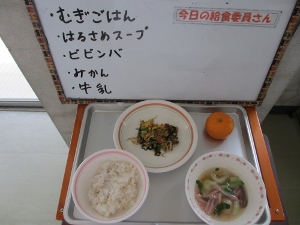 今日の給食委員さん
・むぎごはん
・はるさめスープ
・ビビンバ
・みかん
・牛乳